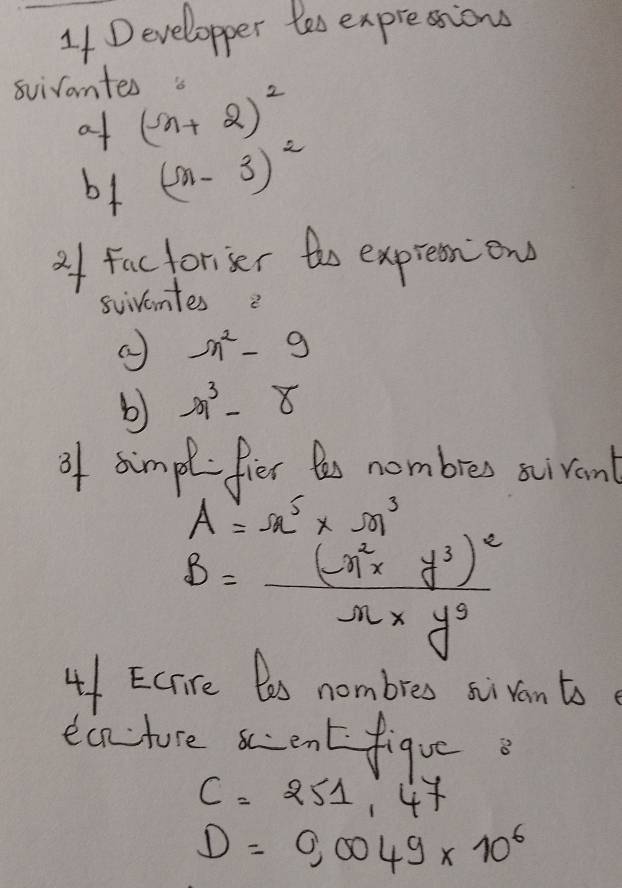 1/ Developper les expressions
suivantes :
a/ (x + 2)²
b/ (x - 3)²
2/ Factoriser les expressions
suivantes :
a) x² - 9
b) x³ - 8
3/ simplifier les nombres suivant
A = x⁵ × x³
B = (x² × y³)²
x × y⁹
4/ Ecrire les nombres suivants e
écriture scientifique :
C = 251,47
D = 0,0049 × 10⁶